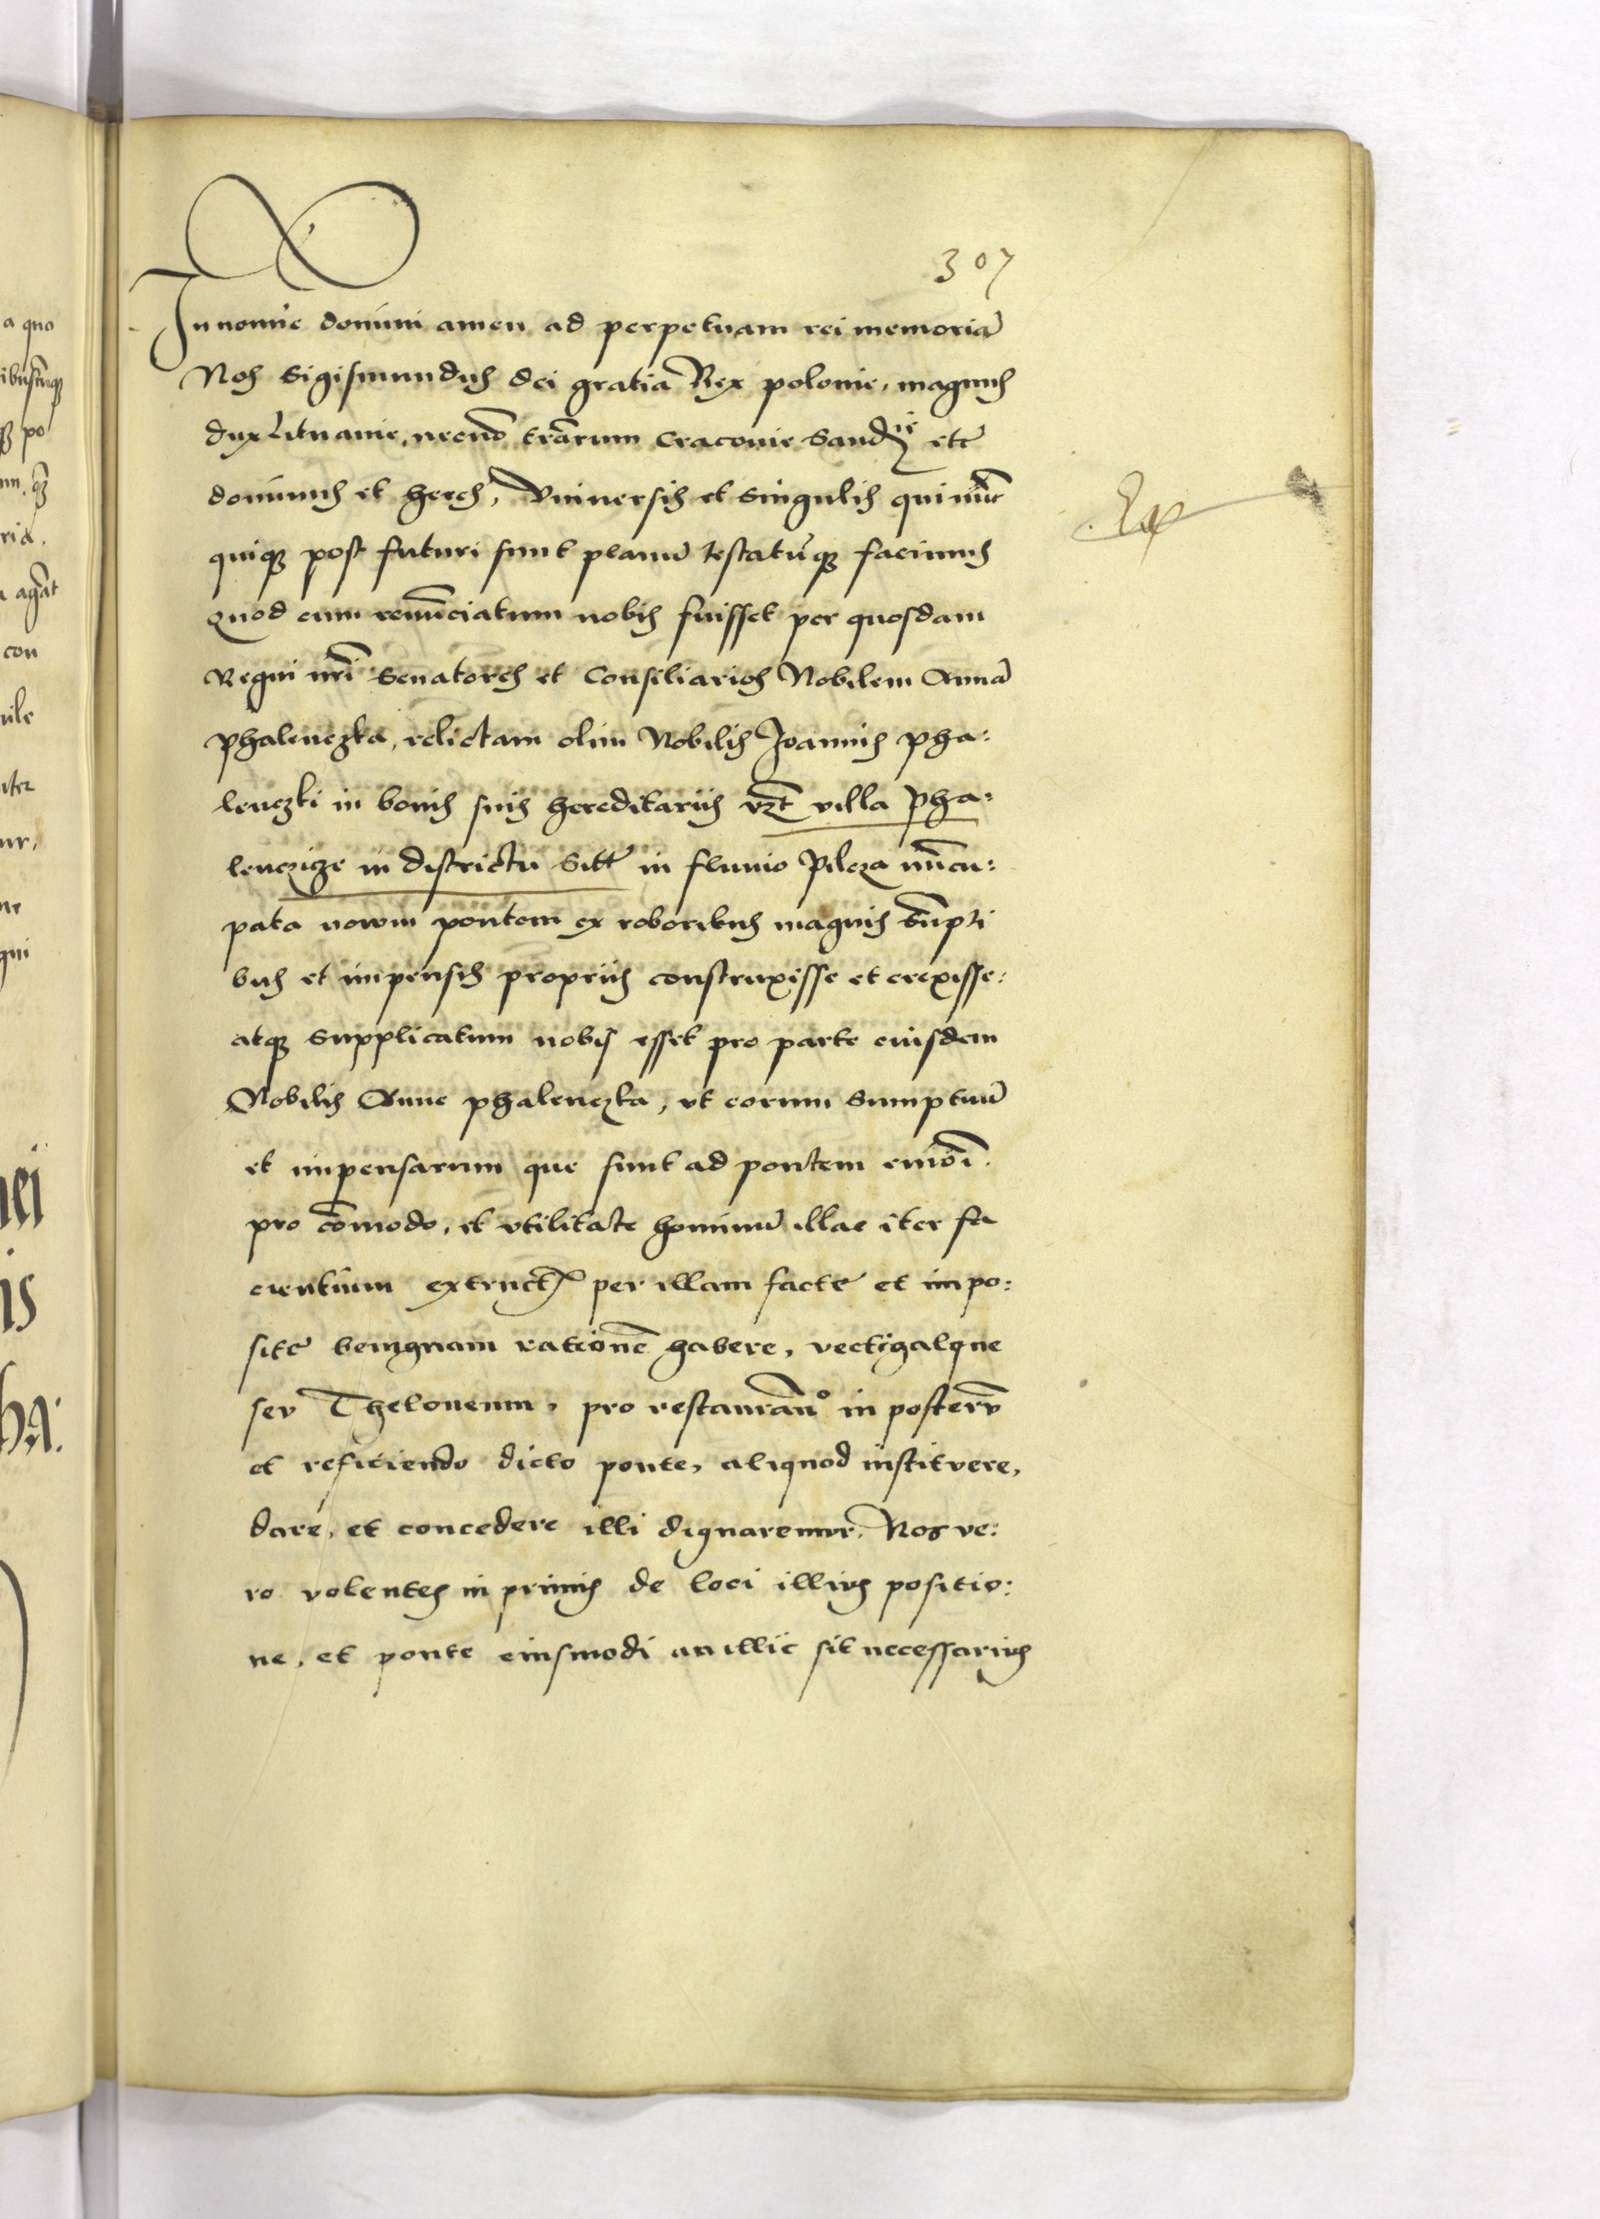 307
In nomīe domini amen ad perpetuam rei memoriā
Nos Sigismundus dei gratia Rex polonie, magnus
dux Lituanie, necnō trārum Cracouie Sandie etc̄
dominus et heres, Vniuersis et singulis qui nūc
quiqꝫ post futuri sunt planū testatūqꝫ facimus
Quod cum renūciatum nobis fuisset per quosdam
Regni nrī Senatores et Consiliarios Nobilem Annā
Phalenczka, relictam olim Nobilis Joannis Pha:
lenczki in bonis suis hereditariis vꝫt villa Pha:
lenczicze in districtu Sitt̄ in fluuio Pilcza nūcu:
pata nowm pontem ex roboribus magnis sūpti
bus et impensis propriis construxisse et erexisse:
atqꝫ supplicatum nobis esset pro parte eiusdem
Nobilis Anne phalenczka, vt eorum sumptuū
et impensarum que sunt ad pontem eiusmōi
pro cōmodo, et vtilitate hominū illac iter fa
cientium extruct per illam facte et impo:
site benignam rationē habere, vectigalque
seu Theloneum, pro restaurānº in posterū
et reficiendo dicto ponte, aliquod instituere,
dare, et concedere illi dignaremur. Nos ve:
ro volentes in primis de loci illius positio:
ne, et ponte eiusmodi an illic sit necessarius